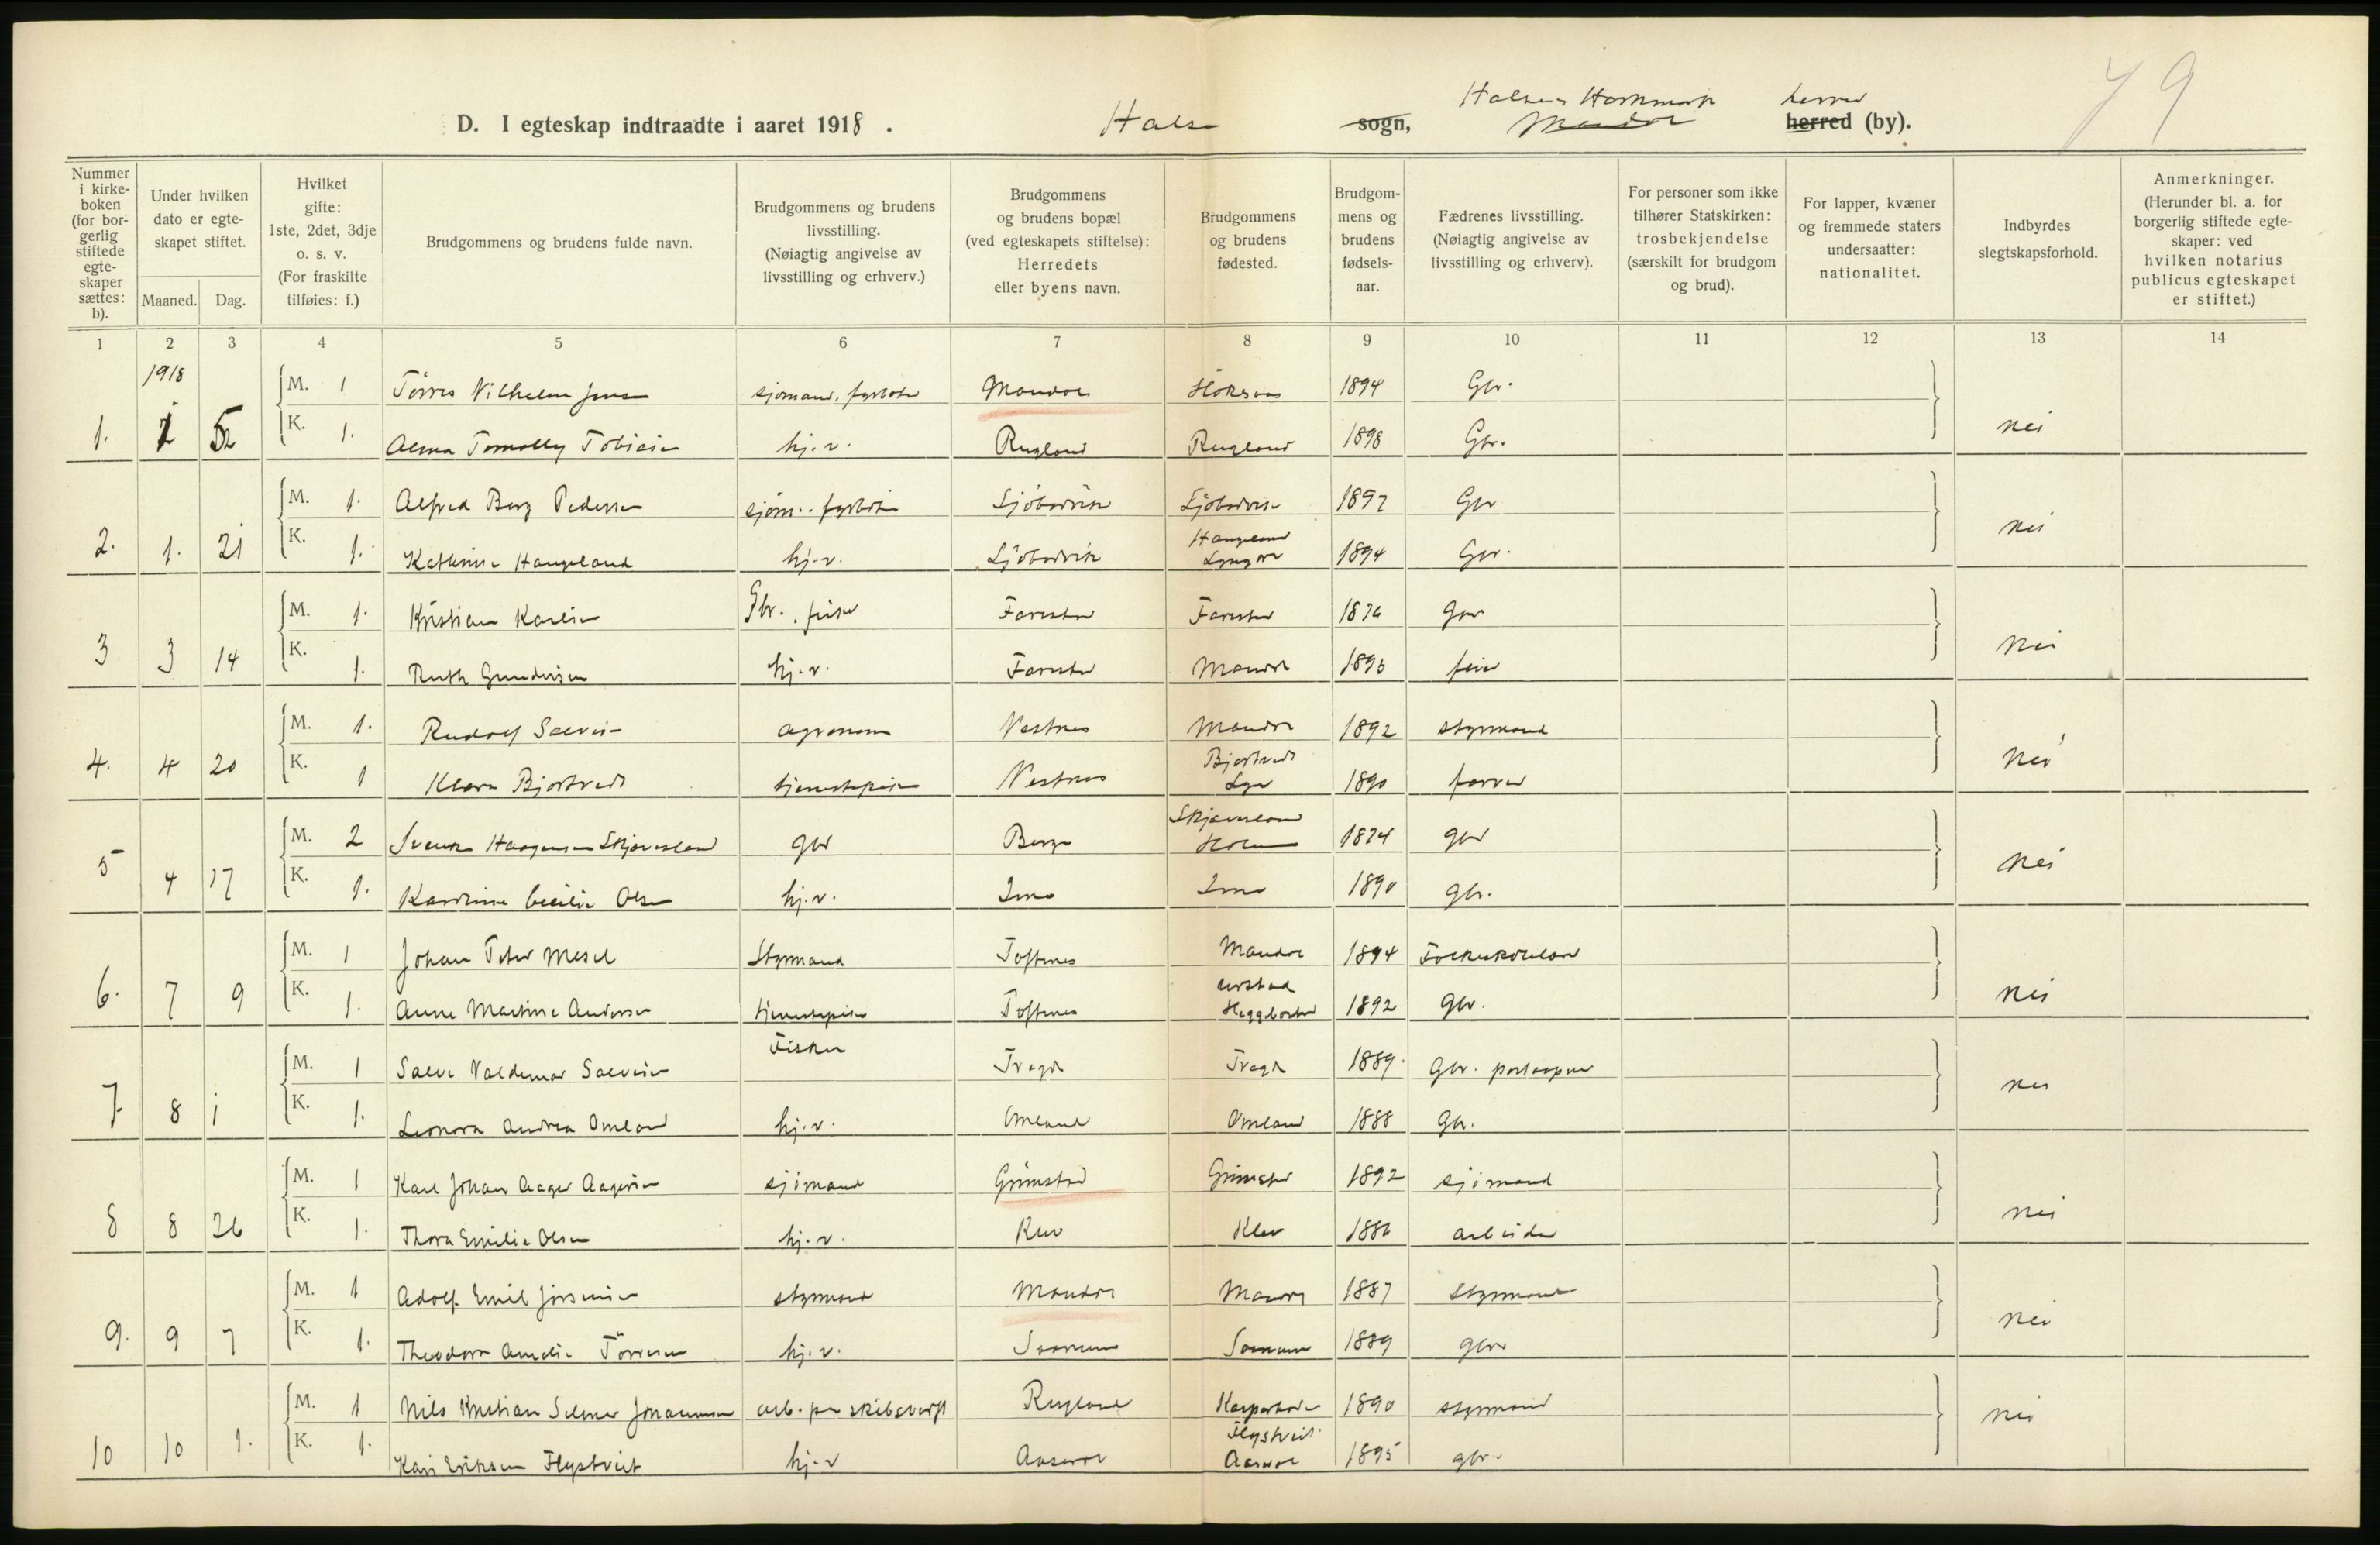 79
Halse og Harkmark herred
D. I egteskap indtraadte i aaret 1918. Halse sogn, Mandal herred (by).
Nummer i kirkeboken (for borgerlig stiftede egteskaper sættes: b).
Under hvilken dato er egteskapet stiftet.
Maaned. Dag.
Hvilket gifte: 1ste, 2det, 3dje o. s. v. (For fraskilte tilføies: f.)
Brudgommens og brudens fulde navn.
Brudgommens og brudens livsstilling. (Nøiagtig angivelse av livsstilling og erhverv.)
Brudgommens og brudens bopæl (ved egteskapets stiftelse): Herredets eller byens navn.
Brudgommens og brudens fødested.
Brudgommens og brudens fødselsaar.
Fædrenes livsstilling. (Nøiagtig angivelse av livsstilling og erhverv).
For personer som ikke tilhører Statskirken: trosbekjendelse (særskilt for brudgom og brud).
For lapper, kvæner og fremmede staters undersaatter: nationalitet.
Indbyrdes slegtskapsforhold.
Anmerkninger. (Herunder bl. a. for borgerlig stiftede egteskaper: ved hvilken notarius publicus egteskapet er stiftet.)
1 2 3 4 5 6 7 8 9 10 11 12 13 14
1918
M. 1 Törres Vilhelm Jens sjömand, fyrböter Mandal 1894 Gbr.
1. K. 1. Alma Tomolly Tobisen hj. v. Rugland Rugland 1898 Gbr. nei
M. 1. Alfred Berg Pedersen sjöm. fyrböter Ljöbodvik Ljöbodvik 1897 Gbr
2. 1. 21 K. 1. Kathrine Haugeland hj. v. Ljöbodvik Haugeland Lyngdal 1894 Gbr. nei
M. 1. Kristian Karlsen Gbr. fisker Farestad Farestad 1876 Gbr
3 3 14 K. 1. Ruth Gundersen hj. v. Farestad Mandal 1893 feier nei
M. 1. Rudolf Salvesen agronom Vestnes Mandal 1892 styrmand
4. 4 20 K. 1 Klara Bjortvedt tjenestepike Vestnes Bjortvedt 1890 nei
M. 2 Haagensen Skjævesland gbr Berge Skjævesland Holum 1874 gbr
5 4 17 K. 1. Cecilie Olsen hj. v. Ime Ime 1890 gbr. nei
M. 1 Johan Peter Mesel Styrmand Toftenes Mandal 1894
6. 7 9 K. 1. Anne Martine Andersen tjenestepike Toftenes Urstad Heggebostad 1892 gbr. nei
M. 1 Salve Valdemar Salvesen Fisker Tregde Tregde 1889 Gbr. postaapner
7. 8 1 K. 1. Leonora Andrea Omland hj. v. Omland Omland 1888 Gbr. nei
M. 1 Karl Johan Aage Aagesen sjömand Grimstad Grimstad 1892 sjömand
8 8 26 K. 1. Thora Emilie Olsen hj. v. Klev Klev 1886 arbeider nei
M. 1 Adolf Emil Jörgensen styrmand Mandal Mandal 1887 Styrmand
9. 9 7 K. 1. Theodora Amalie Törresen hj. v. Saanum Saanum 1889 gbr nei
M. 1 Nils Kristian Selmer Johannessen arb. paa skibsverft Rugland 1890 styrmand
10 10 1. K. 1. Kari Eriksen Flystveit hj. v Flystveit Aaseral 1895 gbr. nei